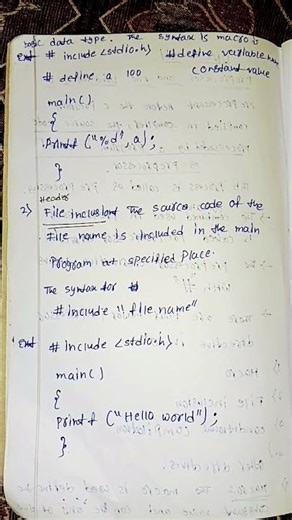 basic data type. The syntax is macro is
Ex:- # include <stdio.h> #define variable name
constant value
# define a 100
main()
{
Printf ("%d", a);
}
Header
2) File inclusion: The source code of the
file name is included in the main
Program at specified place.
The syntax for
# include "file name"
# include <stdio.h>;
main()
{
printf ("Hello world");
}